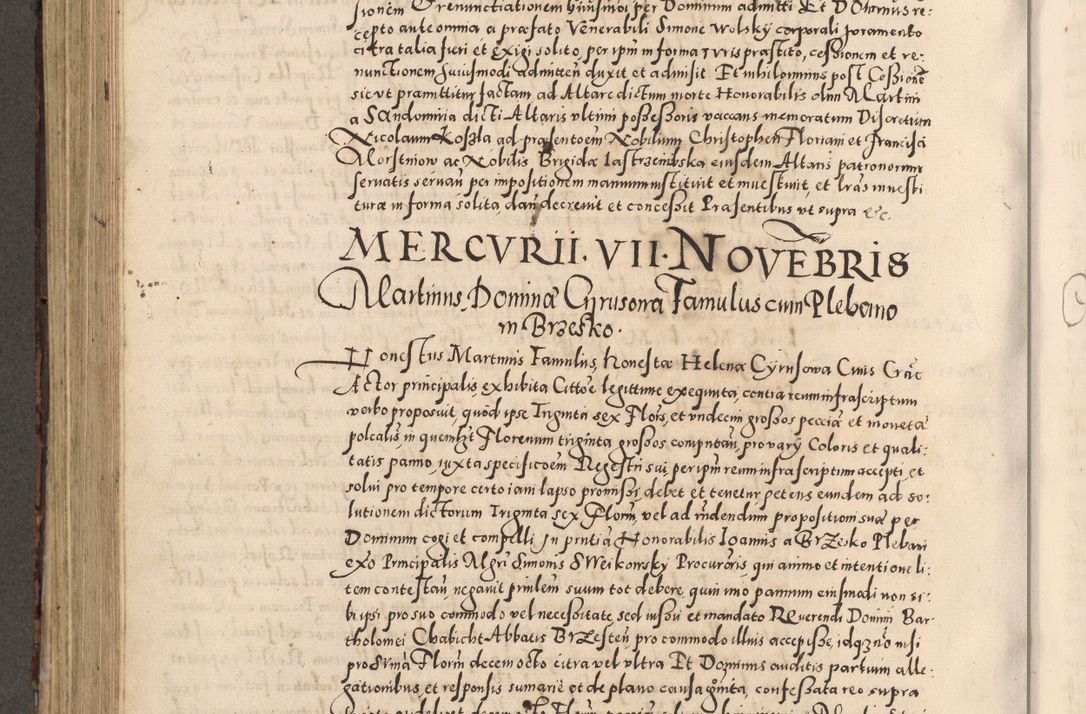 sionem et renunctiationem hmõi per Dominum admitti Et D. Ominus re:
cepto ante omnia a præfato Venerabili Simone Wolsky corporali Joramento
citra talia fieri et exigi solito, per ipm in forma Juris præstito, cessionem et re:
nunctionem huiusmodi admitten̄ duxit et admisit Et nihilominus post Cessione
sic ut præmittitur factam ad Altare dictum morte Honorabilis olim Martini
a Sandomiria dicti Altaris ultimi possessoris vaccans memoratum Discretum
Nicolaum Koszla ad præsentõem Nobilium Christopheri Floriani et Francisci
ac Nobilis Brigidæ Iastrzembska eiusdem Altaris patronorum
servatis servan̄ per impositionem manuum instituit et investivit, et lras investi
turæ in forma solita, dan̄ decrevit et concessit Præsentibus ut supra &c.
MERCVRII. VII. NOVEBRIS
Martinus, Dominæ Cyrusona Famulus cum Plebano
in Brzesko.
Honestus Martinus Famulus, honestæ Helenæ Cyrusowa Civis Crac
Actor principalis, exhibita Cittõe legittime exequuta, contra reum infrascriptum
verbo proposuit, quod ipse Triginta sex Flors, et undecim grossos peccuiæ et monetæ
polcalis in quemlzt Florenum triginta grossos computan̄, pro vary Coloris et quali:
tatis panno, iuxta specificõem Regestri sui, per ipm reum infrascriptum accepti, et
solui pro tempore certo iam lapso promissi, debet et tenetur, petens eundem ad so:
lutionem dictorum Triginta sex Florn, vel ad rñdendum propositioni suæ per
Dominum cogi et compelli In pñtia Honorabilis Ioannis a Brzesko Plebani
exõ Principalis Mgri Simonis Sweikowsky Procuroris, qui animo et intentione li:
tem contestan̄ negavit prinlem suum tot debere, quin imo pannum eiusmodi non si:
bi ipsi pro suo commodo vel necessitate sed iussu et mandato Reverendi Domini Bar
tholomei Chabicht Abbatis Brzesten̄, pro commodo illius accepisse, idqz nõ nisi
pro Florin̄ decem octo citra vel ultra Et Dominus auditis partium alle:
gationibus, et responsis sumarie et de plano causa cognita, confessata reo supra